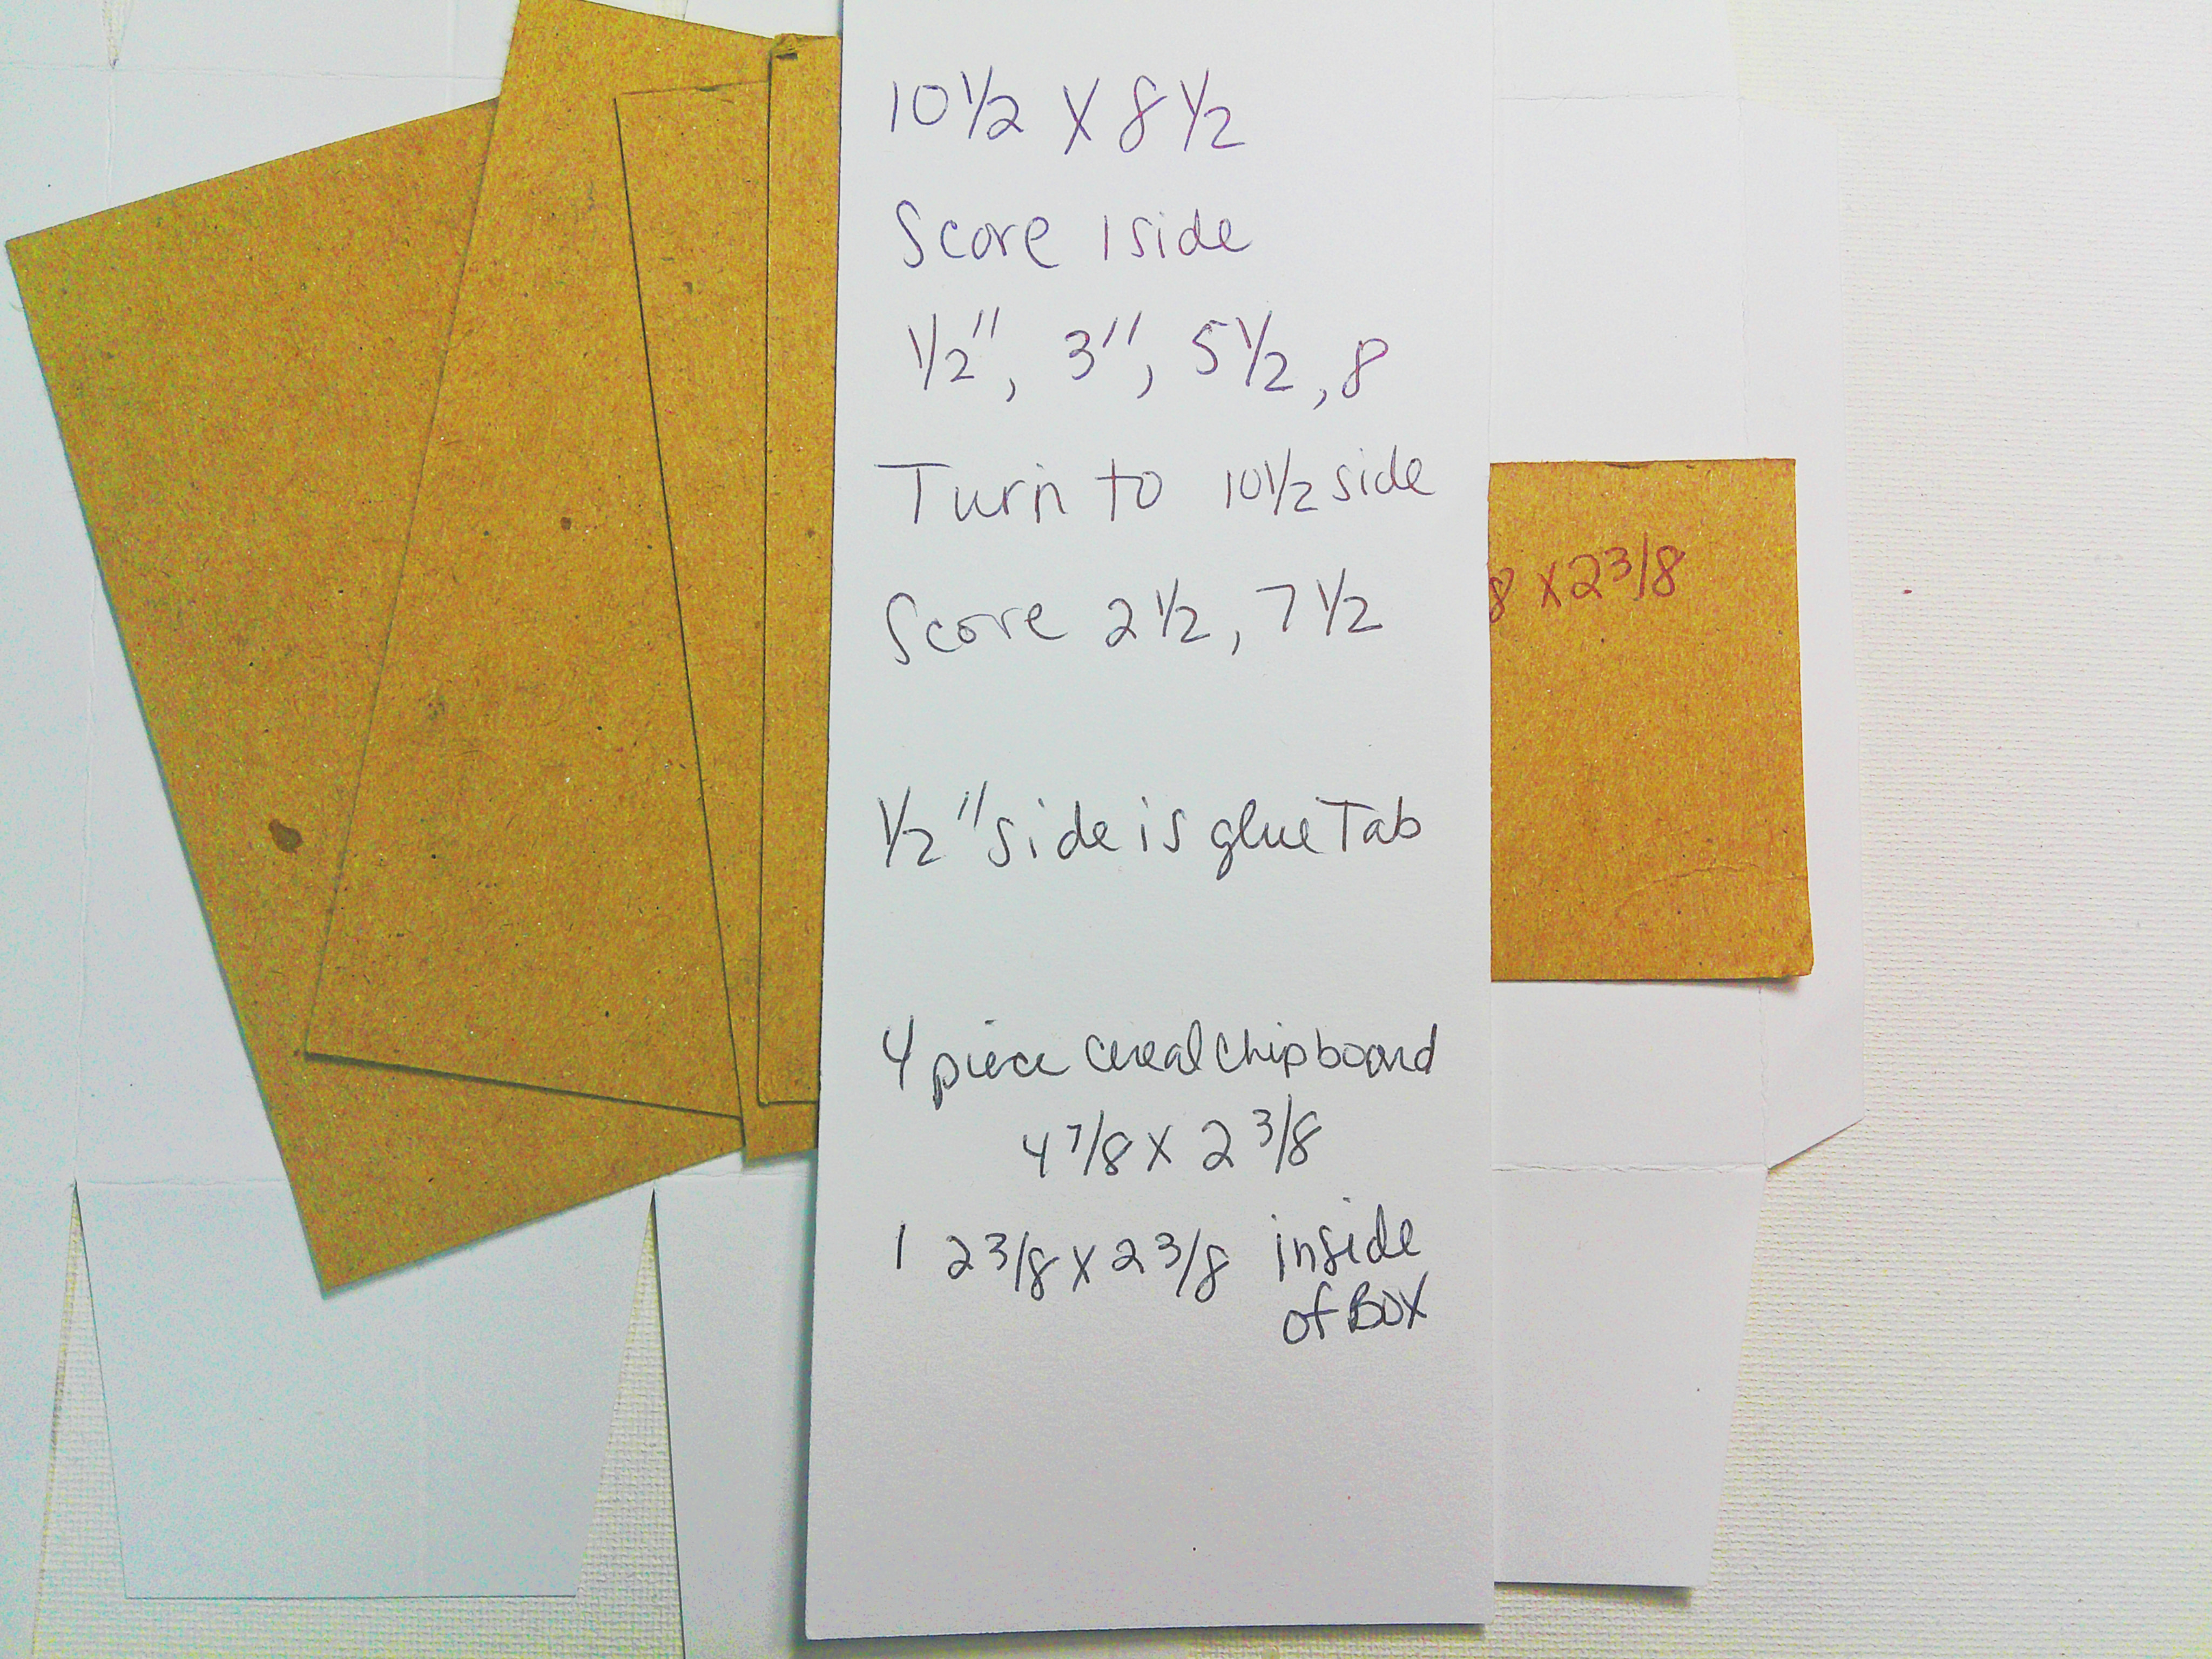 10 1/2 X 8 1/2
Score 1 side
1/2", 3", 5 1/2, 8
Turn to 10 1/2 side
Score 2 1/2, 7 1/2
1/2" side is glue Tab
4 piece cereal chipboard
4 7/8 X 2 3/8
1 2 3/8 X 2 3/8 inside
of Box
8 X 2 3/8